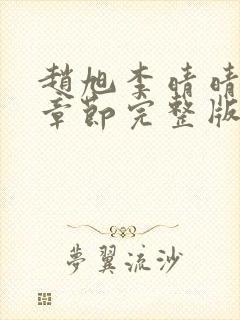 趙旭李晴晴
章節完整版
夢翼流沙